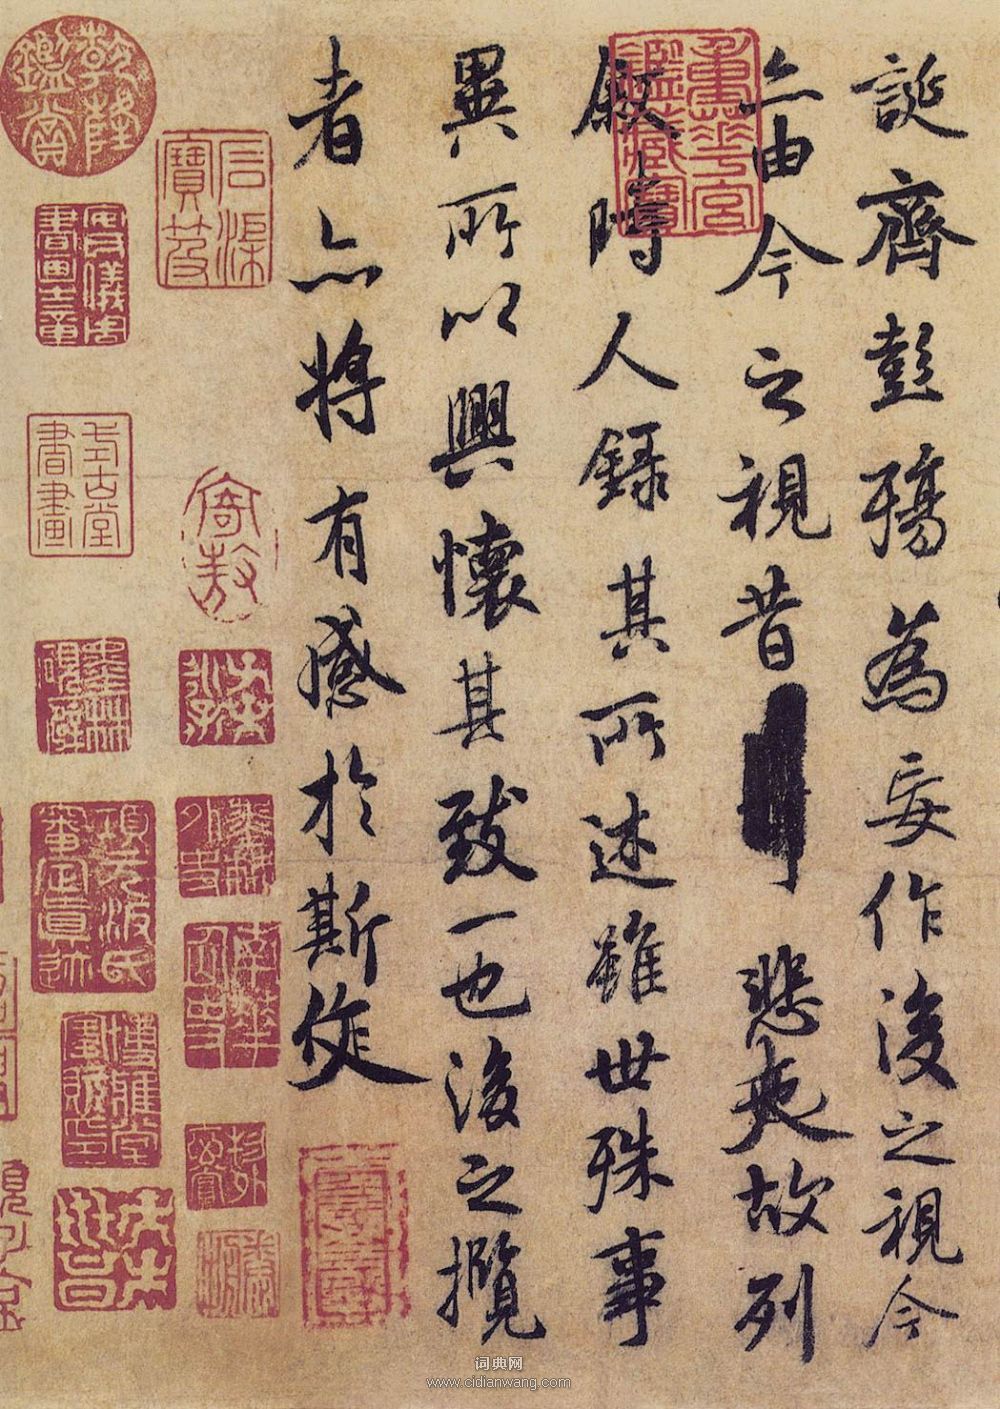 誕齊彭殤為妄作後之視今
亦由今之視昔悲夫故列
叙時人錄其所述雖世殊事
異所以興懷其致一也後之攬
者亦將有感於斯文
重華宮鑑藏寶
石渠寶笈
乾隆鑑賞
安儀周書畫之章
式古堂書畫
項元汴氏審定真迹
词典网
www.cidianwang.com